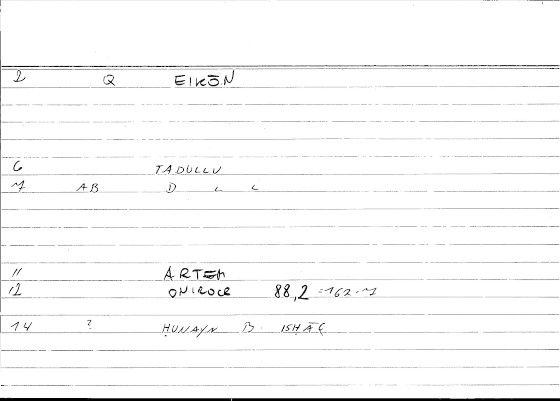 2 Q EIKŌN
6 TADULLU
7 AB D L L
11 ARTEM
12 ONIROCR 88,2 = 162.7
14 ? ḤUNAYN B. ISḤĀQ